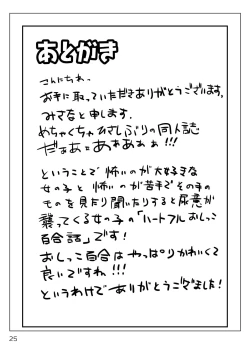 あとがき
こんにちわっ
お手に取っていただきありがとうございます。
みさなと申します。
めちゃくちゃひさしぶりの同人誌
だぁあ＝あぁあぁぁ!!!
ということで怖いのが大好きな
女の子と怖いのが苦手でその手の
ものを見たり聞いたりすると尿意が
襲ってくる女の子の「ハートフルおしっこ
百合話」です!
おしっこ百合はやっぱりかわいくて
良いですね!!!
というわけでありがとうございました!
25